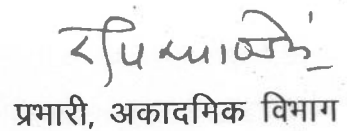 प्रभारी, अकादमिक विभाग